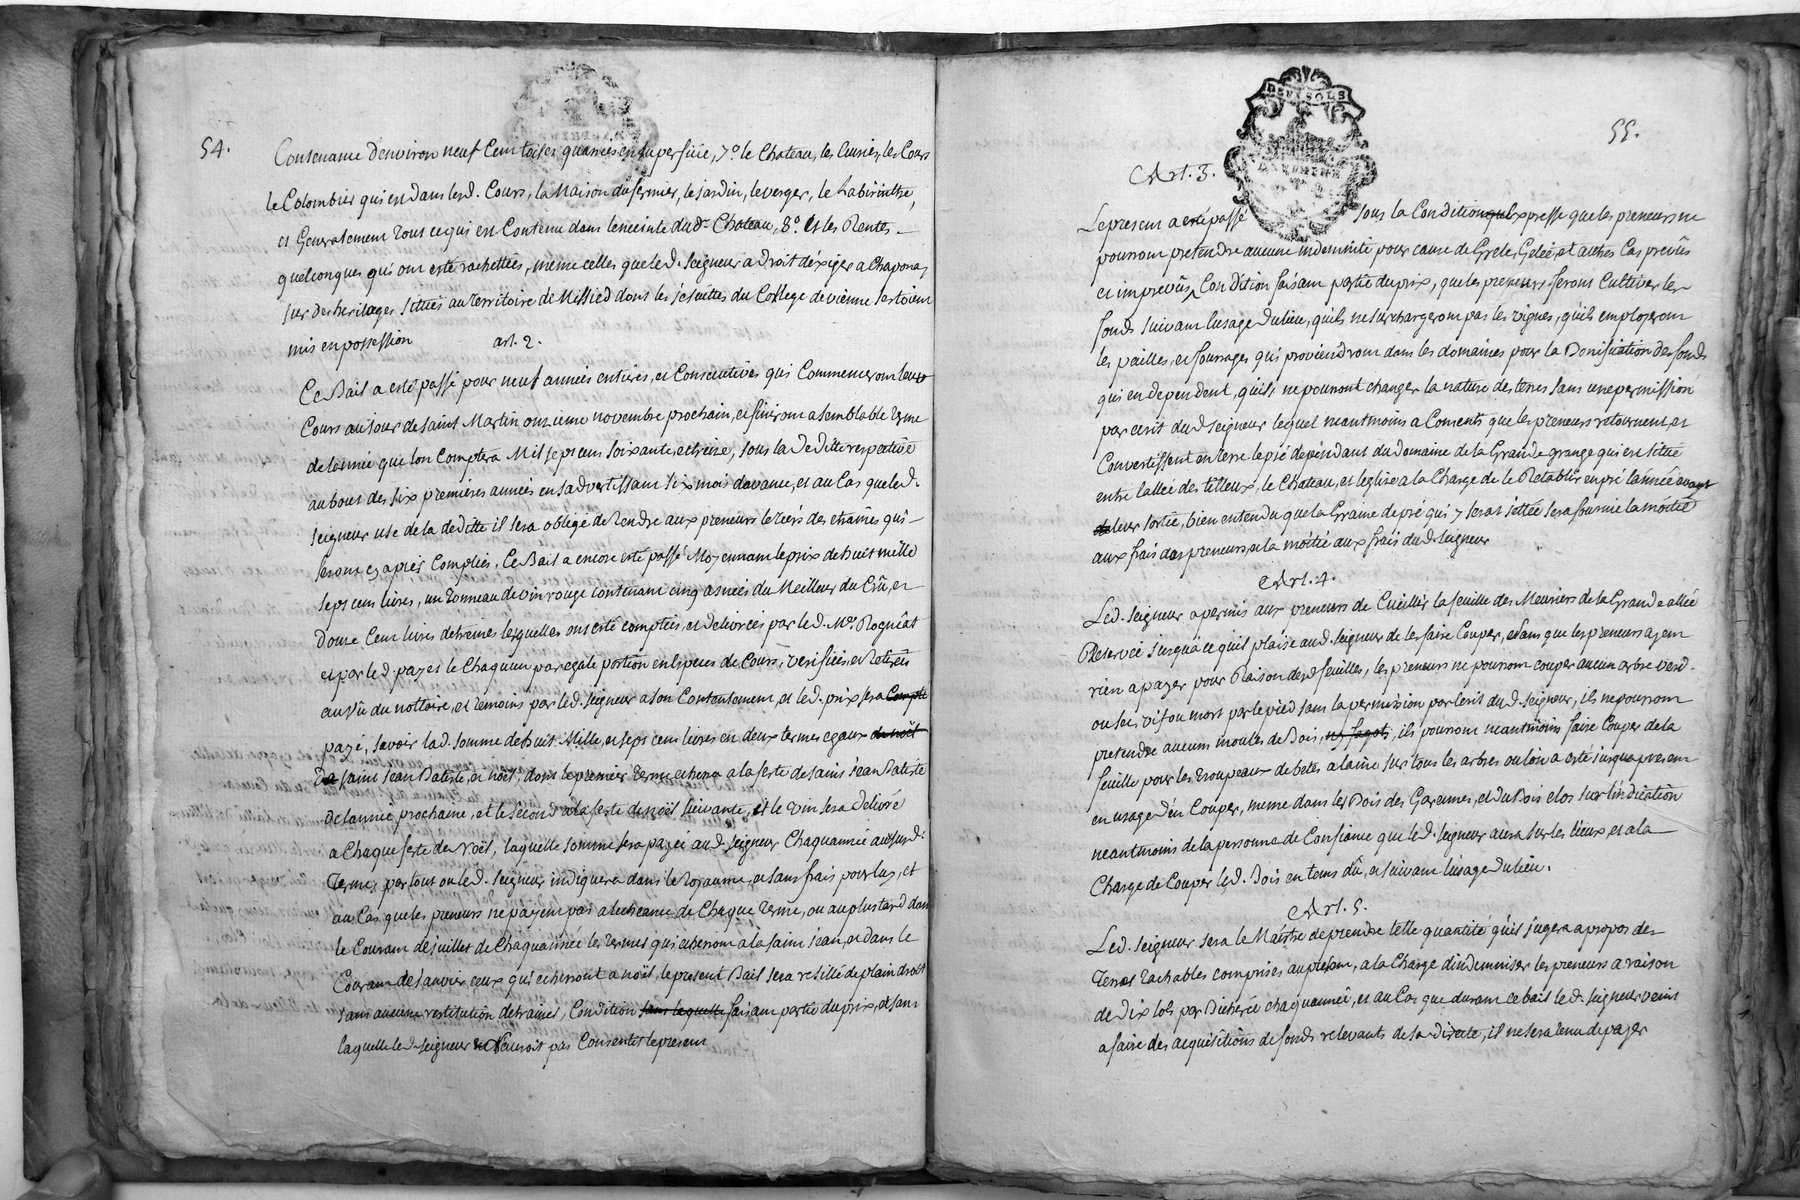 54.
Contenance denviron neuf Cent toises quarrées en superficie, 7.º le Chateau, les Curies, les Cours
le Colombier qui en dans lesd. Cours, la Maison du fermier, le jardin, le verger, le Labirinthe,
et Generalement tout ce qui en Contenu dans lenceinte dud. Chateau, 8.º et les Rentes
quelconques qui ont esté rachettées, même celles que led. Seigneur a droit dexiger a Chaponay
sur des heritages situés au territoire de Missied dont les jésuittes du College de vienne sestoient
mis en possession
art. 2.
Ce Bail a esté passé pour neuf années entieres, et Consecutives qui Commenceront leur
Cours au jour de saint Martin onzieme novembre prochain, et finiront a semblable terme
de lannée que lon Comptera Mil sept cent soixante, et treize, sous la deditte respective
au bout des six premieres années en sadvertissant six mois davance, et au Cas que led.
seigneur use de la deditte il sera obligé de rendre aux preneurs le tiers des etraines qui
seront cy apres Comptées. Ce Bail a encore esté passé Moyennant le prix de huit mille
sept cent livres, un tonneau de vin rouge contenant cinq asnées du Meilleur du Crû, et
douze Cent livres detreines lesquelles ont esté comptées, et delivrées par led. Mr. Rogniat
et par led. payet le Chaqun par egale portion en Especes de Cours, verifiées, et retirées
au vû du nottaire, et temoins par led. seigneur a son Contentement, et led. prix sera Compté
payé, savoir lad. somme de huit Mille, et sept cent livres en deux termes egaux de noel
Da saint jean Batiste, et noel, dont le premier terme echera a la feste de saint jean Batiste
de lannée prochaine, et le second a la feste de noel suivante, et le vin sera delivré
a Chaque feste de Noël, laquelle somme sera payée aud. seigneur Chaquannée aux susd.
termes par tout ou led. seigneur indiquera dans le royaume, et sans frais pour luy, et
au Cas que les preneurs ne payent pas a lecheance de Chaque terme, ou au plus tard dans
le Courant de juillet de Chaquannée les termes qui echeront a la saint jean, et dans le
Courant de janvier ceux qui echeront a noel, le present Bail sera resillé de plain droit
sans aucune restitution detraines, Condition sans lequelle faisant partie du prix, et sans
laquelle led. seigneur nauroit pas Consenti le present
55.
Art. 3.
Le present a eté passé sous la Condition expresse que les preneurs ne
pourront pretendre aucune indemnité pour cause de Grele, Gelée, et autres Cas prevûs
et imprevûs, Condition faisant partie du prix, que les preneurs feront Cultiver les
fonds suivant lusage du lieu, quils ne surchargeront pas les vignes, quils employeront
les pailles, et fourrages qui proviendront dans les domaines pour la Bonification des fonds
qui en dependent, quils ne pourront changer la nature des terres sans une permission
par ecrit dud. seigneur lequel neantmoins a Consenti que les preneurs retournent et
Convertissent en terre le pré dependant du domaine de la Grande grange qui est situé
entre lallée des tilleux, le Chateau, et leglise a la Charge de le Retablir en pré lannée avant
de leur sortie, bien entendu que la Graine de pré qui y sera jettée sera fournie la moitié
aux frais des preneurs, et la moitié aux frais dud. seigneur
Art. 4.
Led. seigneur a permis aux preneurs de Cueillir la feuille des Meuriers de la Grande allée
Reservée jusqua ce quil plaise aud. seigneur de les faire Couper, et sans que les preneurs ayent
rien a payer pour Raison desd. feuilles, les preneurs ne pourront couper aucun arbre verd
ou sec, vif ou mort par le pied sans la permission par ecrit dud. seigneur, ils ne pourront
pretendre aucuns moules de Bois, ny fagots, ils pourront neantmoins faire Couper de la
feuille pour les troupeaux de betes a laine sur tous les arbres ou lon a esté jusqua present
en usage den Couper, meme dans les Bois des Garennes, et du Bois clos sur lindication
neantmoins de la personne de Confiance que led. seigneur aura sur les lieux et a la
Charge de Couper led. Bois en tems dû, et suivant lusage du lieu.
Art. 5.
Led. seigneur sera le Maitre de prendre telle quantité quil jugera a propos des
terres rachables comprises au present, a la Charge dindemniser les preneurs a raison
de dix sols par Bicherée chaquannée, et au Cas que durant ce bail led. seigneur vienne
a faire des acquisitions de fonds relevants de sa directe, il ne sera tenu de payer